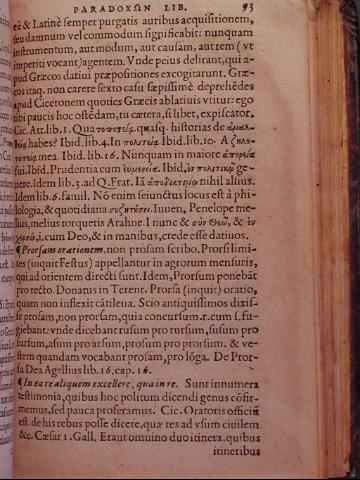 PARADOXΩN LIB. 93
eē & Latinè semper purgatis auribus acquisitionem,
seu damnum vel commodum significabit: nunquam
instrumentum, aut modum, aut causam, aut rem (vt
imperiti vocant) agentem. Vnde peius delirant, qui a-
pud Græcos datiui præpositiones excogitarunt. Græ-
cos itaq. non carere sexto casu sæpissimè deprehēdes
apud Ciceronem quoties Græcis ablatiuis vtitur: ego
tibi paucis hoc ostēdam, tu cætera, si libet, expiscator.
Cic. Att. lib. 1. Qua quasq. historias de
habes? Ibid. lib. 4. In πολιτείᾳ Ibid. lib. 10. A
mea. Ibid. lib. 16. Nunquam in maiore ἀπορίᾳ
fui. Ibid. Prudentia cum εὐμενείᾳ. Ibid. ἐν πολιτικῷ ge-
nere. Idem lib. 3. ad Q. Frat. Iā ἀποδυκτηρίῳ nihil allius.
Idem lib. 6. famil. Nō enim seiunctus locus est à phi-
lologia, & quotidiana συζητήσει. Iuuen, Penelope me-
lius, melius torquetis Arahne. I nunc & σὺν Θεῷ, & ἐν
χερσὶν, i. cum Deo, & in manibus, crede esse datiuos.
¶ Prorsam orationem, non prosam scribo. Prorsi limi-
tes (inquit Festus) appellantur in agrorum mensuris,
qui ad orientem directi sunt. Idem, Prorsum ponebāt
pro recto. Donatus in Terent. Prorsa (inquit) oratio,
quam non inflexit cātilena. Scio antiquissimos dixis-
se prosam, non prorsam, quia concursum .r. cum s. fu-
giebant: vnde dicebant rusum pro rursum, susum pro
sursum, asum pro arsum, prosum pro prorsum. & ve-
stem quandam vocabant prosam, pro lōga. De Pror-
sa Dea Agellius lib. 16. cap. 16.
¶ In ea re aliquem excellere, qua in re. Sunt innumera
testimonia, quibus hoc politum dicendi genus cōfir-
memus, sed pauca proferamus. Cic. Oratoris officiū
est. de his rebus posse dicere, quæ res ad vsum ciuilem
&c. Cæsar 1. Gall, Erant omnino duo itinera. quibus
itineribus